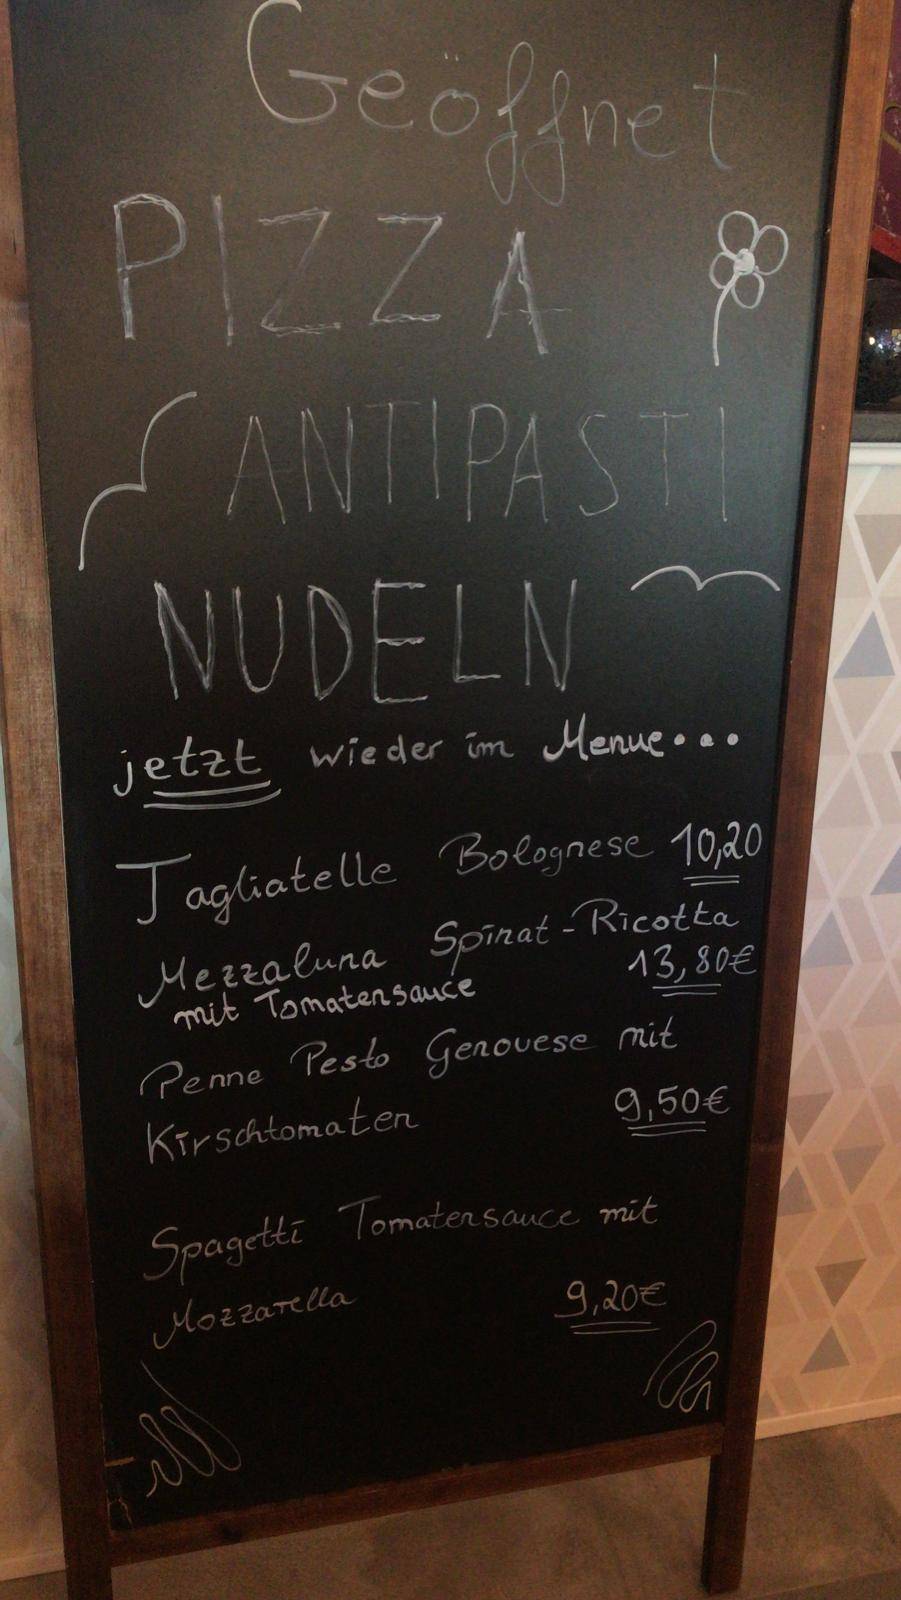 Geöffnet
PIZZA
ANTIPASTI
NUDELN
jetzt wieder im Menue...
Tagliatelle Bolognese 10,20
Mezzaluna Spinat-Ricotta
mit Tomatensauce 13,80€
Penne Pesto Genovese mit
Kirschtomaten 9,50€
Spagetti Tomatensauce mit
Mozzarella 9,20€